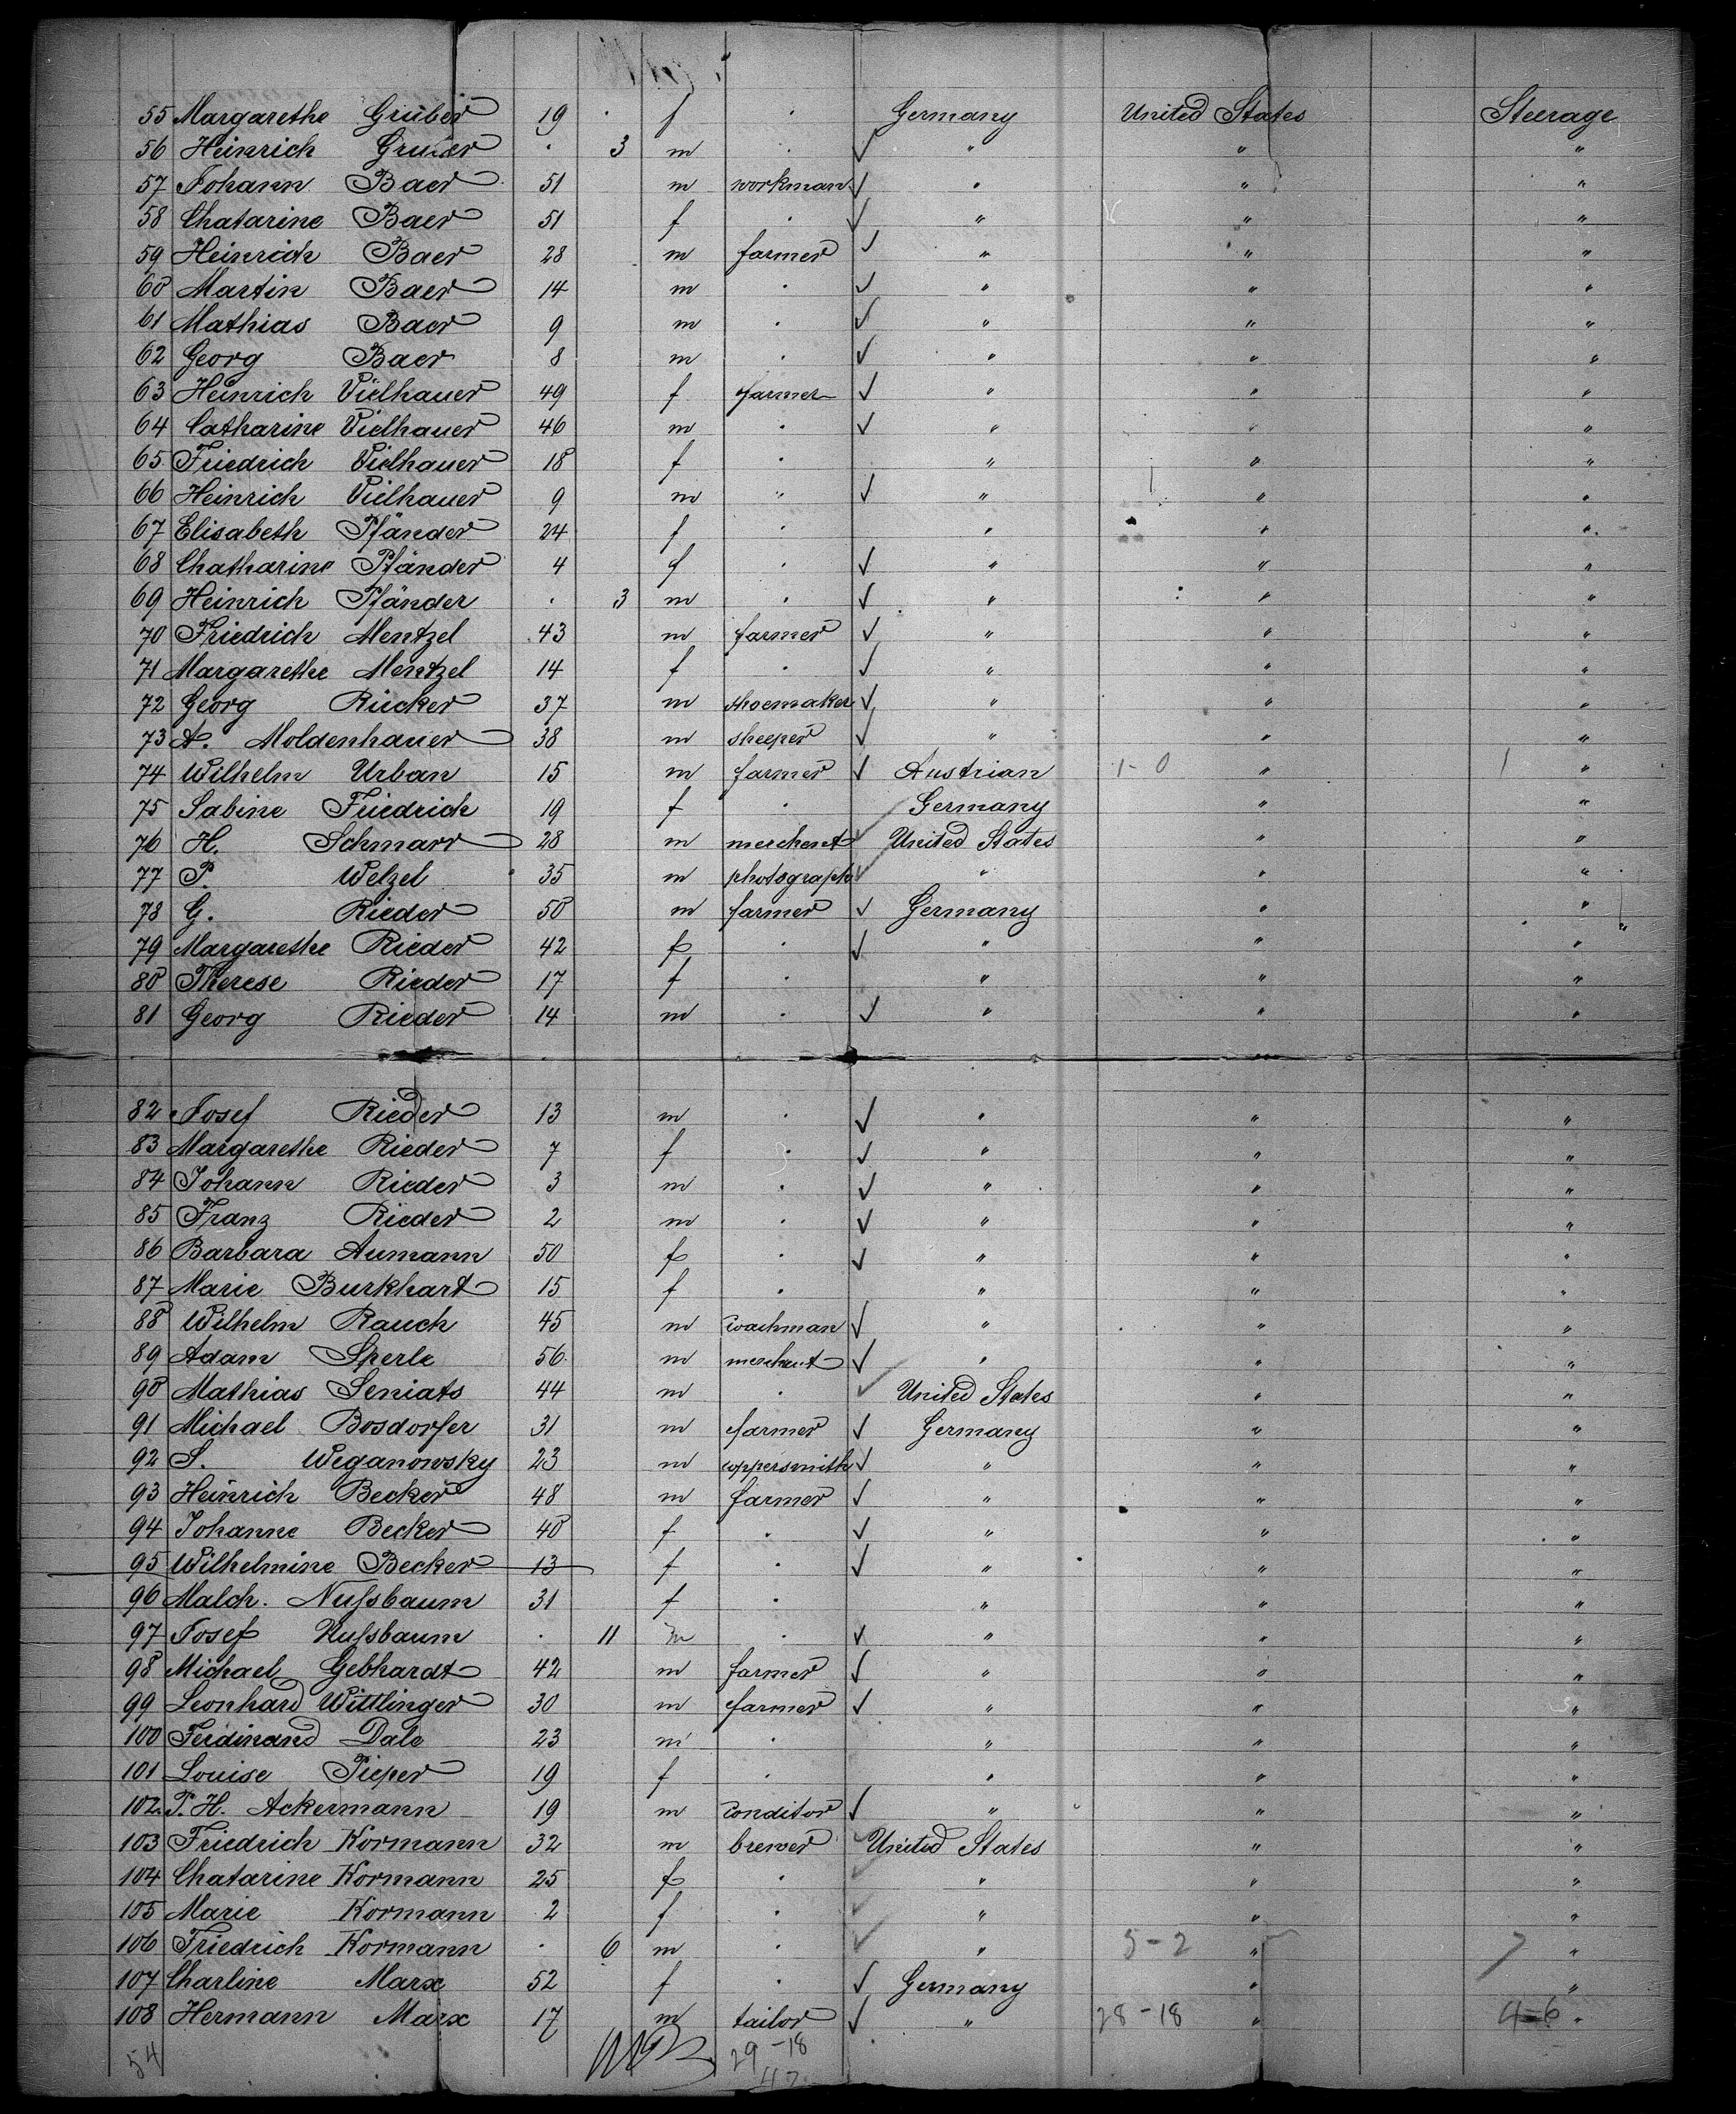 55 Margarethe Gruber 19 · f · Germany United States Steerage
56 Heinrich Gruber · 3 m · ✓ " " "
57 Johann Baer 51 m workman ✓ " " "
58 Chatarine Baer 51 f · ✓ " " "
59 Heinrich Baer 28 m farmer ✓ " " "
60 Martin Baer 14 m · ✓ " " "
61 Mathias Baer 9 m · ✓ " " "
62 Georg Baer 8 m · ✓ " " "
63 Heinrich Vielhauer 49 f farmer ✓ " " "
64 Catharine Vielhauer 46 m · ✓ " " "
65 Friedrich Vielhauer 18 f · " " "
66 Heinrich Vielhauer 9 m " ✓ " " "
67 Elisabeth Pfänder 24 f · " " "
68 Chatharine Pfänder 4 f · ✓ " " "
69 Heinrich Pfänder · 3 m · ✓ " " "
70 Friedrich Mentzel 43 m farmer ✓ " " "
71 Margarethe Mentzel 14 f · ✓ " " "
72 Georg Rücker 37 m shoemaker ✓ " " "
73 A. Moldenhauer 38 m sheeper ✓ " " "
74 Wilhelm Urban 15 m farmer ✓ Austrian 1-0 " 1 "
75 Sabine Friedrich 19 f · Germany " "
76 H. Schmarr 28 m merchent ✓ United States " "
77 P. Welzel 35 m photograph ✓ " " "
78 G. Rieder 50 m farmer ✓ Germany " "
79 Margarethe Rieder 42 f · ✓ " " "
80 Therese Rieder 17 f · " " "
81 Georg Rieder 14 m · ✓ " " "
82 Josef Rieder 13 m · ✓ " " "
83 Margarethe Rieder 7 f · ✓ " " "
84 Johann Rieder 3 m · ✓ " " "
85 Franz Rieder 2 m · ✓ " " "
86 Barbara Aumann 50 f · ✓ " " "
87 Marie Burkhart 15 f · " " "
88 Wilhelm Rauch 45 m coachman ✓ " " "
89 Adam Sperle 56 m merchent ✓ " " "
90 Mathias Seniats 44 m · ✓ United States " "
91 Michael Bosdorfer 31 m farmer ✓ Germany " "
92 S. Weganowsky 23 m coppersmith ✓ " " "
93 Heinrich Becker 48 m farmer ✓ " " "
94 Johanne Becker 40 f · ✓ " " "
95 Wilhelmine Becker 13 f · ✓ " " "
96 Malch. Nußbaum 31 f · " " "
97 Josef Nußbaum · 11 m · ✓ " " "
98 Michael Gebhardt 42 m farmer ✓ " " "
99 Leonhard Wittlinger 30 m farmer ✓ " " "
100 Ferdinand Dale 23 m · " " "
101 Louise Pieper 19 f · " " "
102 P. H. Ackermann 19 m conditor ✓ " " "
103 Friedrich Kormann 32 m brewer ✓ United States " "
104 Chatarine Kormann 25 f · " " "
105 Marie Kormann 2 f · ✓ " " "
106 Friedrich Kormann · 6 m · ✓ " 5-2 " 7 "
107 Charline Marx 52 f · ✓ Germany " "
108 Hermann Marx 17 m tailor ✓ " 28-18 " 4-6 "
54 29-18
47